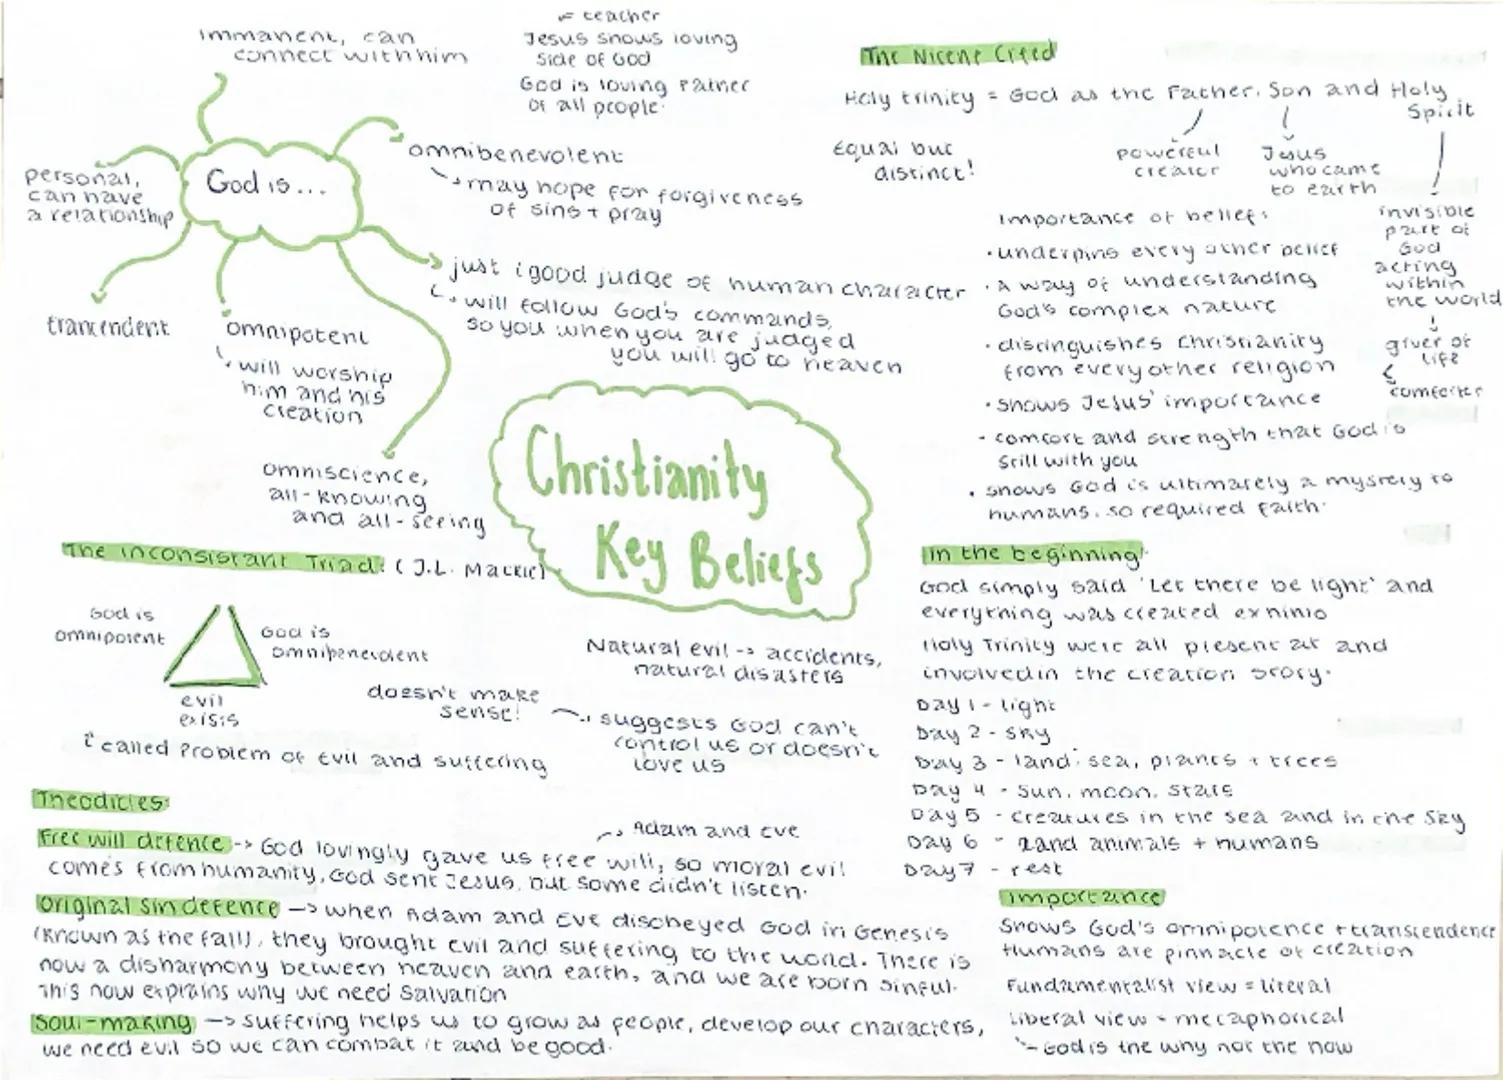 immanent, can
connect with him
= teacher
Jesus shows loving
side of God
God is loving Father
of all people.
God is...
personal,
can have
a relationship
omnibenevolent
may hope for forgiveness
of sins + pray
just, good judge of human character
will follow God's commands,
so you when you are judged
you will go to heaven
trancendent
omnipotent
will worship
him and his
creation
omniscience,
all-knowing
and all-seeing
Christianity
Key Beliefs
The Nicene Creed
Holy trinity = God as the Father, Son and Holy
Spirit
Equal but
distinct!
powerful
creator
Jesus
who came
to earth
invisible
part of
God
acting
within
the world
giver of
life
comforter
Importance of belief:
• underpins every other belief
• A way of understanding
God's complex nature
• distinguishes Christianity
from every other religion
• shows Jesus' importance
- comfort and strength that God is
still with you
• shows God is ultimately a mystery to
humans, so required faith.
The Inconsistant Triad: (J.L. Mackie)
God is
omnipotent
God is
omnibenevolent
evil
exists
called Problem of Evil and suffering
doesn't make
sense!
Natural evil -> accidents,
natural disasters
suggests God can't
control us or doesn't
love us
Theodicies:
Free will defence -> God lovingly gave us free will, so moral evil
Adam and Eve
comes from humanity, God sent Jesus, but some didn't listen.
Original sin defence -> when Adam and Eve disobeyed God in Genesis
(known as the fall), they brought evil and suffering to the world. There is
now a disharmony between heaven and earth, and we are born sinful.
This now explains why we need Salvation
Soul-making -> Suffering helps us to grow as people, develop our characters,
we need evil so we can combat it and be good.
In the beginning:
God simply said 'Let there be light' and
everything was created ex nihio
Holy Trinity were all present at and
involved in the creation story.
Day 1 - light
Day 2 - sky
Day 3 - land, sea, plants + trees
Day 4 - sun, moon, stars
Day 5 - creatures in the sea and in the sky
Day 6 - land animals + humans
Day 7 - rest
Importance
Shows God's omnipotence + transcendence
Humans are pinnacle of creation
Fundamentalist view = literal
Liberal view - metaphorical
- God is the why not the how